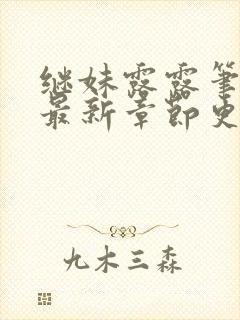 继妹露露笔
最新章节更
九木三森